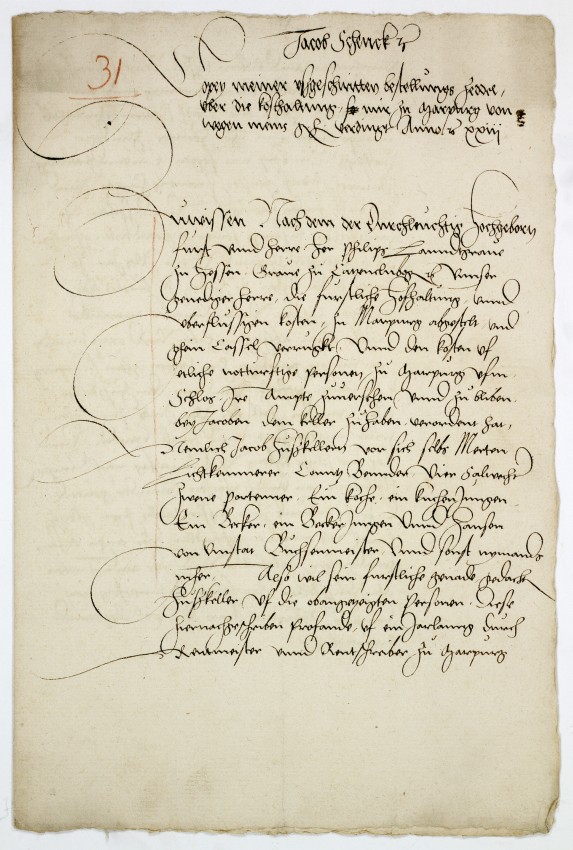 Jacob Schenck
31
Copey meiner ußgeschnitten bestellungs zeddel,
uber die kosthaltung, mir zu Marpurg von
wegen meins g h verdingt Anno xxiij
Zuwissen Nach dem der Durchleuchtig Hochgeborn
furst unnd herre Her Philips Lanndtgraue
zu Hessen Graue zu Catzenelnbog Unnser
genediger herre, die furstliche Hofhaltung, unnd
uberflussigen kosten, zu Marpurg abgestelt und
ghein Cassel verruckt, Unnd den kosten uf
etliche notturftige personen zu Marpurg ufm
Schlos, Ire Ampte zuuersehen unnd zu bliben,
bey Jacoben dem keller zuhaben verordent hat,
Nemlich Jacob Hußkellern vor sich selbs Merten
Lichtkammerer Contz Bennder, Vier Salweche
zwene portener, Ein koche, ein kuchen Jungen
Ein Becker, ein Becker Jungen Unnd Hansen
von Umstat Buchsenmeister, Unnd sonst nymands
mher, Also wil sein furstliche genade gedacht
Hußkeller uf die obangezeigten personen, diese
hiernachgeschriben profande, uf ein Jarlanng durch
Rentmeister unnd Rentschriber zu Marpurg